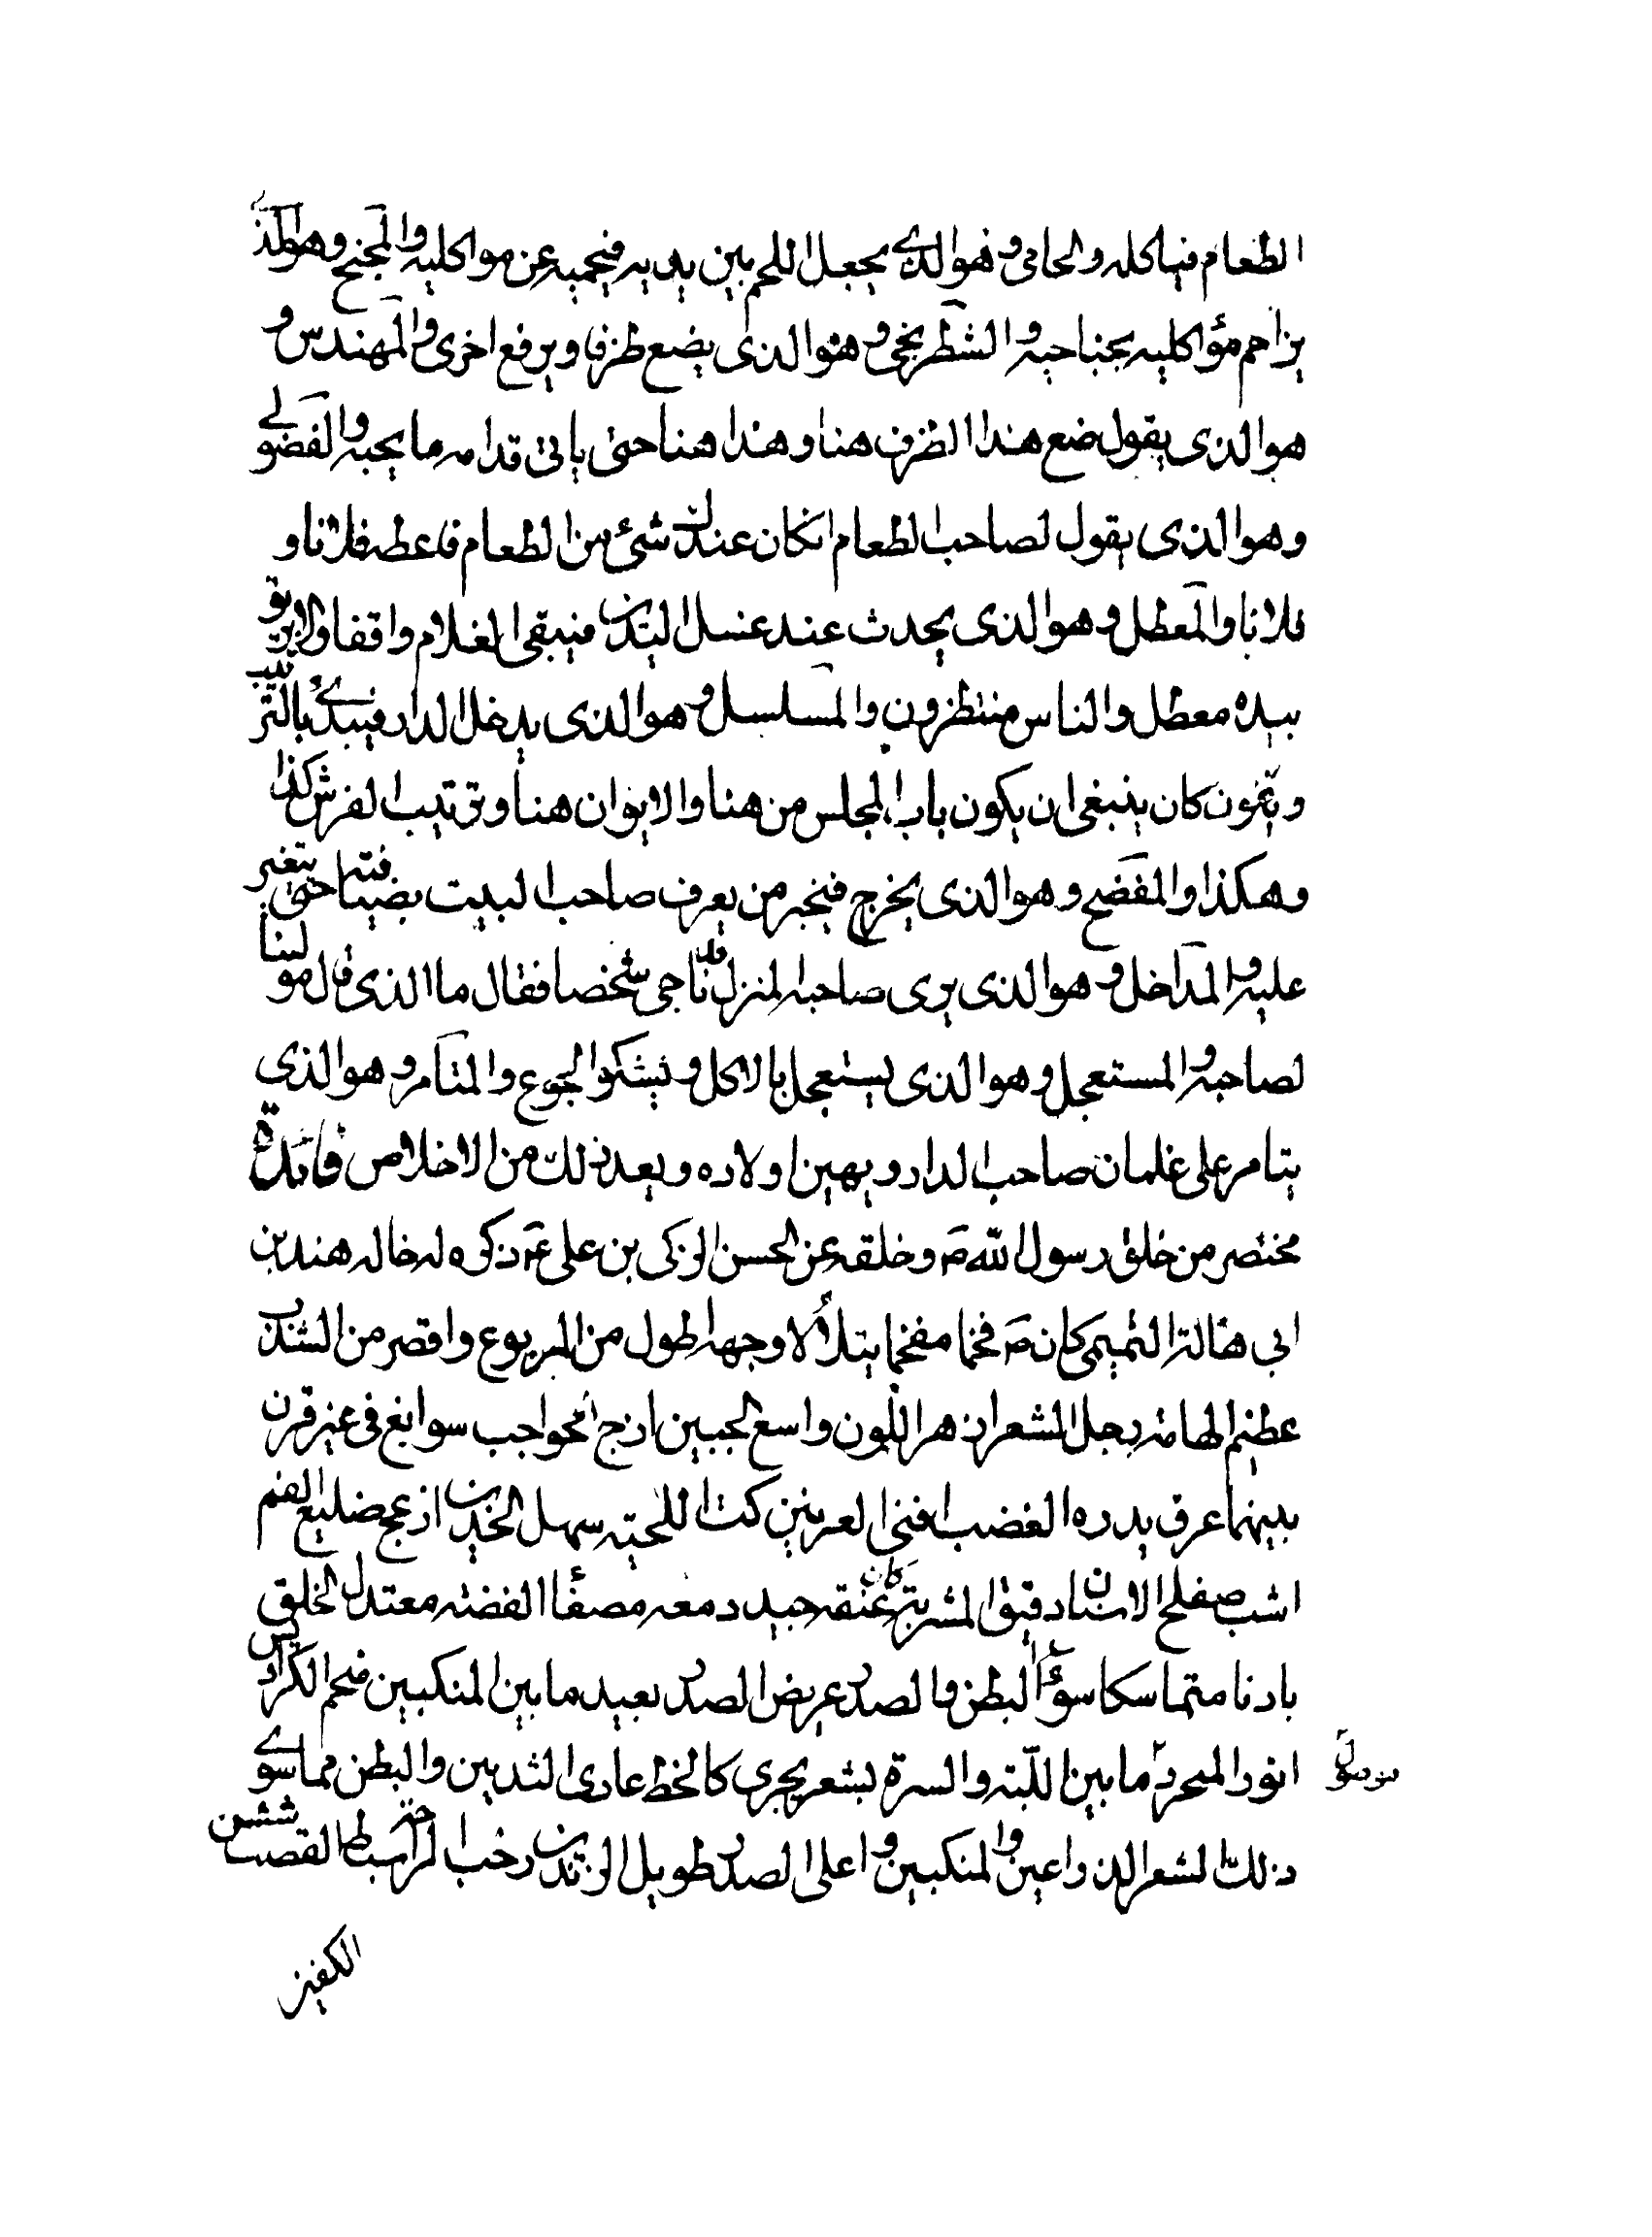 الطعام فياكله والحامى وهو الذي يجعل اللحم بين يديه فيحميه عن مواكليه والمجنح وهو الذي
يزاحم مؤاكليه بجناحيه والشطرنجى وهو الذى يضع ظرفا ويرفع اخرى والمهندس و
هو الذى يقول ضع هذا الظرف هنا وهذا هنا حتى ياتى قدامه ما يحبه والفضولي
وهو الذى يقول لصاحب الطعام انكان عندك شئ من الطعام فاعطه فلانا و
فلانا والمعطل وهو الذى يحدث عند غسل اليدين فيبقى الغلام واقفا والابريق
بيده معطل والناس منتظرون والمسلسل وهو الذى يدخل الدار فيبدئ بالترتيب
ويقول كان ينبغى ان يكون باب المجلس من هنا والايوان هنا وترتيب الفرش كذا
وهكذا والمفضح وهو الذى يخرج فيخبر من يعرف صاحب البيت بضيافته حتى يتغير
عليه والمداخل وهو الذى يرى صاحب المنزل قد ناجى شخصا فقال ما الذى قال مولينا
لصاحبه والمستعجل وهو الذى يستعجل بالاكل ويشكو الجوع والمتامر وهو الذى
يتامر على غلمان صاحب الدار ويهين اولاده ويعد ذلك من الاخلاص فائدة
مختصر من خلق رسول الله ص وخلقه عن الحسن الزكى بن على ع ذكره له خاله هند بن
ابي هالة التميمى كان ص فخما مفخما يتلألا وجهه اطول من المربوع واقصر من المشذب
عظيم الهامة رجل الشعر ازهر اللون واسع الجبين ازج الحواجب سوابغ فى غير قرن
بينهما عرق يدره الغضب اقنى العرنين كث اللحية سهل الخدين ادعج ضليع الفم
اشنب مفلج الاسنان دقيق المشربة كان عنقه جيد دمعه مصفا الفضة معتدل الخلق
بادنا متماسكا سواء البطن والصدر عريض الصدر بعيد ما بين المنكبين ضخم الكراديس
انور المتجرد موصول ما بين اللبة والسرة بشعر يجري كالخط عارى الثديين والبطن مما سوى
ذلك اشعر الذراعين والمنكبين واعلى الصدر طويل الزندين رحب الراحة سبط القصب ششن
الكفين